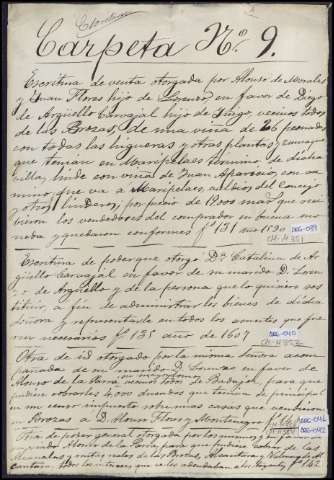 Carpeta Nº 9.
Escritura de venta otorgada por Alonso de Morales
y Juan Flores hijo de Lorenzo en favor de Diego
de Argüello Carvajal hijo de Diego, vecinos todos
de las Brozas, de una viña de 26 peonadas
con todas las higueras y otras plantas y
que tenian en Maripelaes termino de dicha
villa, linde con viña de Juan Aparicio, con ca
mino que va a Maripelaes, valdios del Concejo
y otros linderos; por precio de 19.000 mar. que reci
bieron los vendedores del comprador en buena mo
neda y quedaron conformes fº 131 año
DEG-039
CH-H 351
Escritura de poder que otorgó Dª Catalina de Ar
güello Carvajal en favor de su marido D. Loren
zo de Argüello y de la persona que lo quisiere sus
tituir, a fin de administrar los bienes de dicha
Señora y representarle en todos los asuntos que fue
ren necesarios fº 135 año de 1607
DEG-040
CH-H 352
Otra de id otorgada por la misma Señora acom
pañada de su marido D. Lorenzo en favor de
Alonso de la Parra vecino todos de Badajoz, para que
pudiese cobrarles 4.000 ducados que tenian de principal
en un censo impuesto sobre unas casas que vendieron
en Brozas a D. Alonso Flores y Montenegro
DEG-041
Otra de poder general otorgada por los mismos en favor
de Alonso de la Parra para que pudiese cobrar de las
y de las Brozas, Alcantara y Valencia de Al
cantara, todos los intereses que les adeudaban